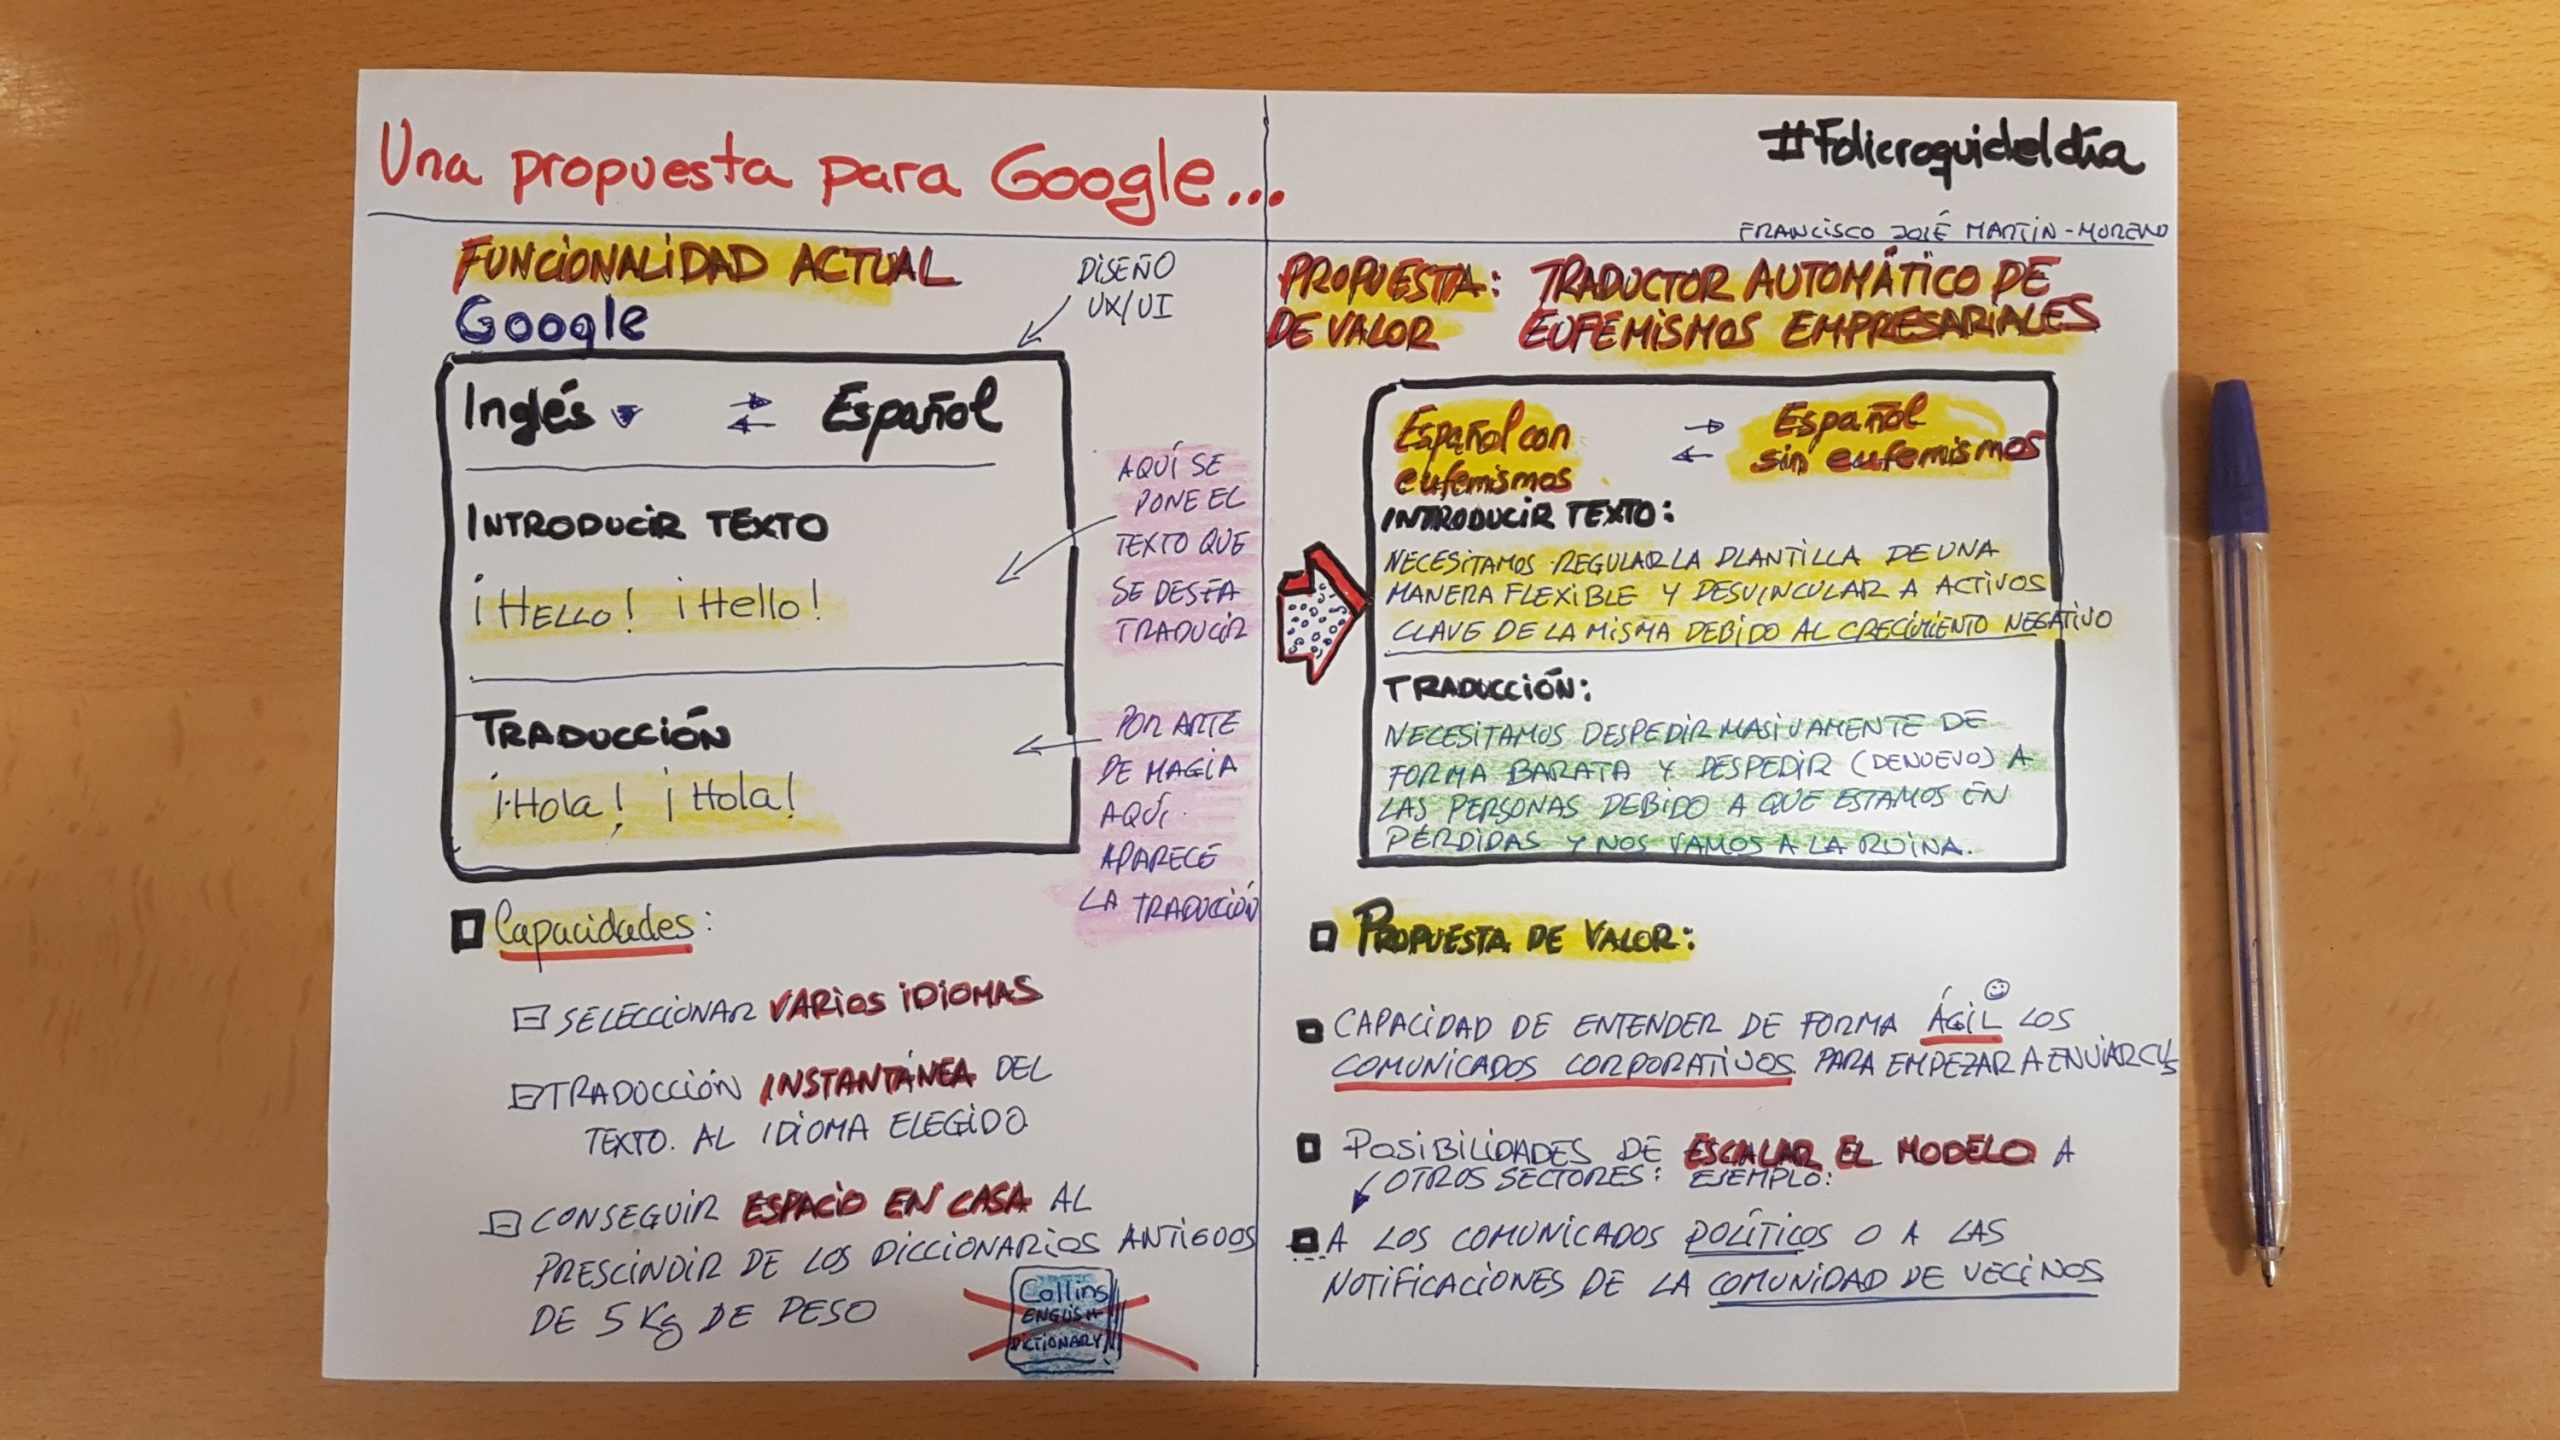 Una propuesta para Google...
#Folicroquideldía
FRANCISCO JOSÉ MARTIN-MORENO
FUNCIONALIDAD ACTUAL
Google
DISEÑO
UX/UI
Inglés ▼ ⇄ Español
INTRODUCIR TEXTO
¡HELLO! ¡Hello!
TRADUCCIÓN
¡Hola! ¡Hola!
AQUÍ SE
PONE EL
TEXTO QUE
SE DESEA
TRADUCIR
POR ARTE
DE MAGIA
AQUÍ
APARECE
LA TRADUCCIÓN
Capacidades:
SELECCIONAR VARIOS IDIOMAS
TRADUCCIÓN INSTANTÁNEA DEL
TEXTO. AL IDIOMA ELEGIDO
CONSEGUIR ESPACIO EN CASA AL
PRESCINDIR DE LOS DICCIONARIOS ANTIGUOS
DE 5 Kg DE PESO
Collins
ENGLISH
DICTIONARY
PROPUESTA: TRADUCTOR AUTOMÁTICO DE
DE VALOR EUFEMISMOS EMPRESARIALES
Español con ⇄ Español
eufemismos sin eufemismos
INTRODUCIR TEXTO:
NECESITAMOS REGULAR LA PLANTILLA DE UNA
MANERA FLEXIBLE Y DESVINCULAR A ACTIVOS
CLAVE DE LA MISMA DEBIDO AL CRECIMIENTO NEGATIVO
TRADUCCIÓN:
NECESITAMOS DESPEDIR MASIVAMENTE DE
FORMA BARATA Y DESPEDIR (DE NUEVO) A
LAS PERSONAS DEBIDO A QUE ESTAMOS EN
PÉRDIDAS Y NOS VAMOS A LA RUINA.
PROPUESTA DE VALOR:
CAPACIDAD DE ENTENDER DE FORMA ÁGIL LOS
COMUNICADOS CORPORATIVOS PARA EMPEZAR A ENVIAR CVs
POSIBILIDADES DE ESCALAR EL MODELO A
OTROS SECTORES: EJEMPLO:
A LOS COMUNICADOS POLÍTICOS O A LAS
NOTIFICACIONES DE LA COMUNIDAD DE VECINOS